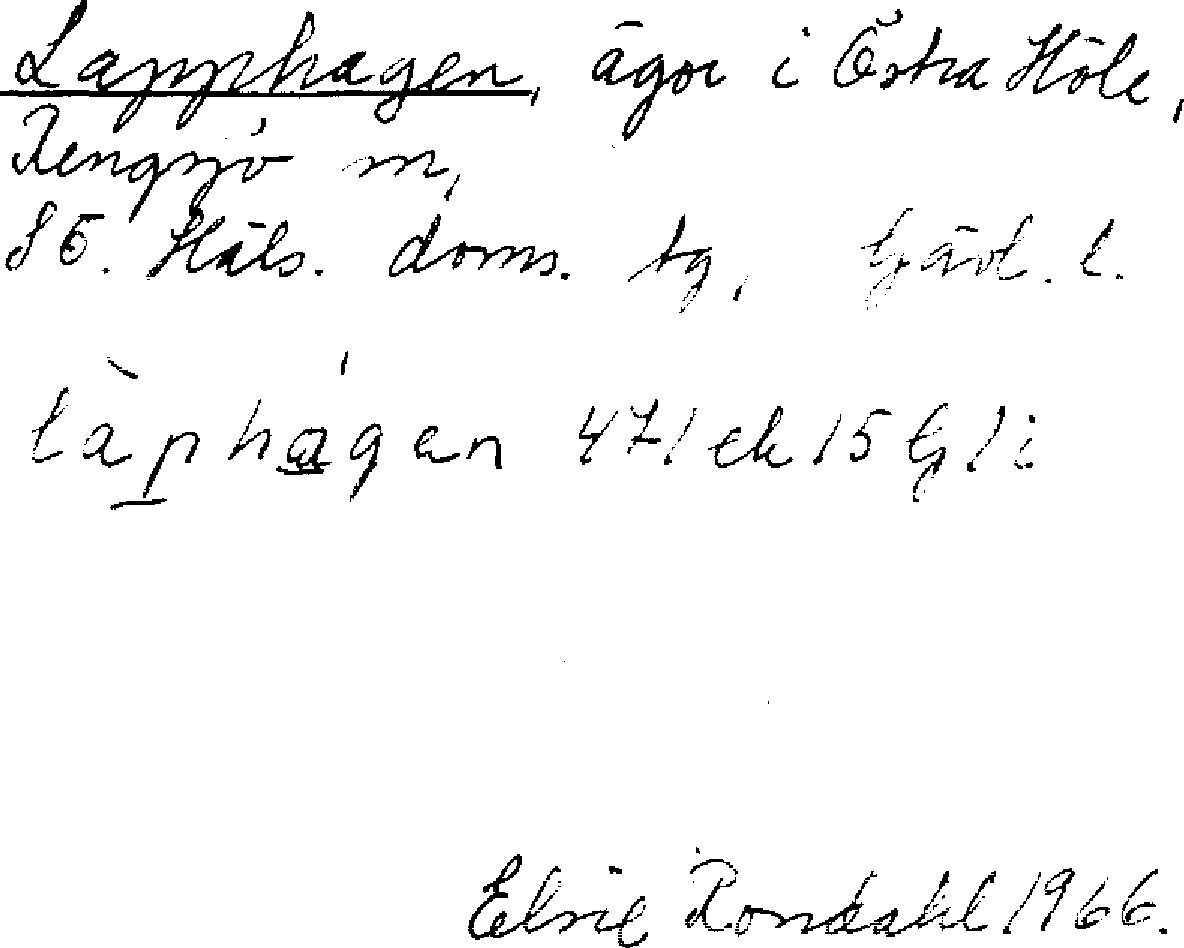 Lapphagen, ägor i Östra Höle,
Rengsjö sn,
SÖ. Häls. doms. tg, Gävl. l.
làphágen 47/ ek 15 G/i
Elsie Rondahl 1966.